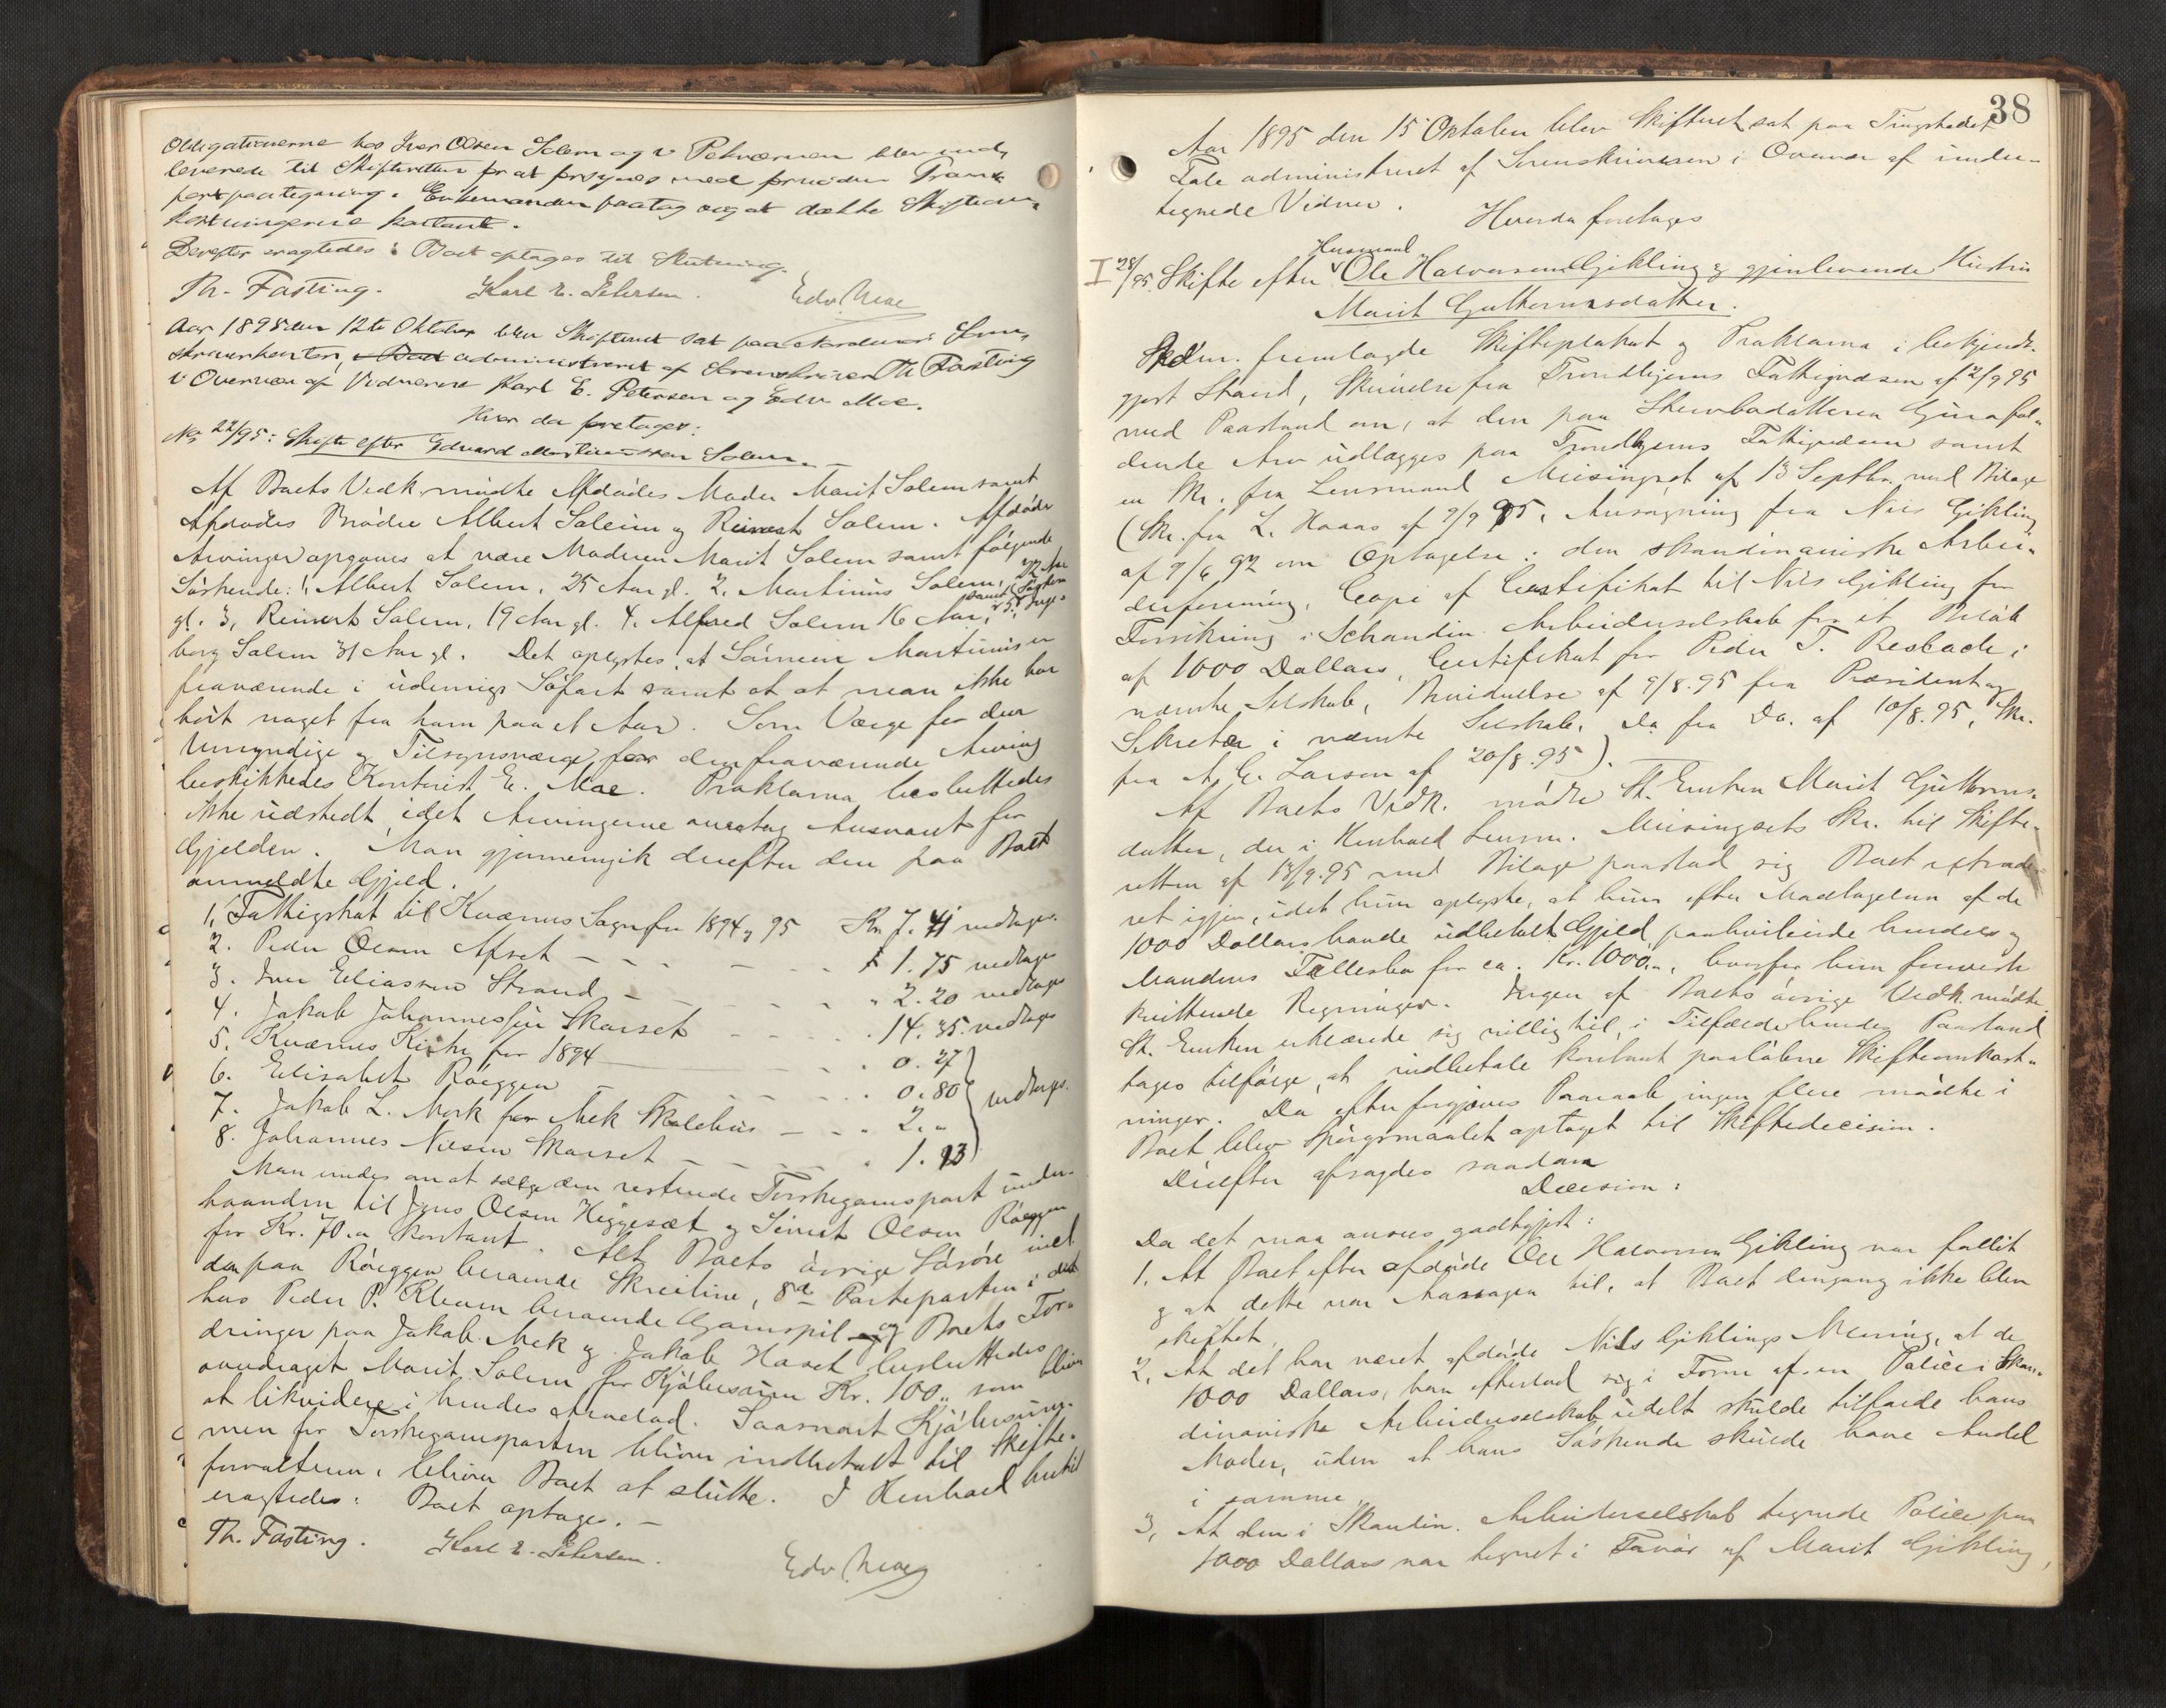 Obligationerne hos Iver Olsen Solem og i Petværnen blev inde
leverede til Skifteretten for at forsynes med fornøden Trans
portpaategning. Enkemanden paatog sig at dække Skifteom
kostningerne kontant.
Derefter eragtedes: Boet optages til Slutning.
Th. Fasting. Karl E. Petersen. Edv Moe
Aar 1895 den 12te Oktober blev Skifteret sat paa Nordmør Soren
skriverkontor, administreret af Sorenskriver Th Fasting
i Overvær af Vidnerne Karl E. Petersen og Edv Moe.
Hvor da foretages:
No 22/95: Skifte efter Edvard Martinussen Solem.
Af Boets Vedk. mødte Afdødes Moder Marit Solem samt
Afdødes Brødre Albert Solem og Reinert Solem. Afdødes
Arvinger opgaves at være Moderen Marit Solem samt følgende
Søskende: 1, Albert Solem, 25 Aar gl. 2, Martinus Solem, 22 Aar
gl. 3, Reinert Solem, 19 Aar gl. 4. Alfred Solem 16 Aar, samt Søsteren 5. Inge
borg Solem 31 Aar gl. Det oplystes, at Sønnen Martinus er
fraværende i udenrigs Søfart samt at at man ikke har
hørt noget fra ham paa et Aar. Som Værge for den
Umyndige og Tilsynsværge for den fraværende Arving
beskikkedes Kontorist E. Moe. Proklama besluttedes
ikke udstedt, idet Arvingerne overtog Ansvaret for
Gjælden. Man gjennemgik derefter den paa Boet
anmeldte Gjæld.
1, Fattigskat til Kværnes Sogn for 1894 og 95 Kr. 7.41 vedtages.
2. Peder Olsen Afset - - - - 1.75 vedtages
3. Iver Eliassen Strand - - - " 2.20 vedtages
4. Jakob Johannessen Skarset - - - 14.35. vedtages
5. Kværnes Kirke for 1894 - - 0.27
6. Elisabet Røeggen - - - 0.80 vedtages.
7. Jakob L. Mork for Mek Skolehus - - 2."
8. Johannes Nilsen Skarset - - - 1.93
Man enedes om at sælge den resterende Torskegarnspart under-
haanden til Jens Olsen Heggesæt og Sivert Olsen Røeggen
for Kr. 70.- kontant. Alt Boets øvrige Løsøre med
den paa Røeggen beroende Skreiline, 8de Parteparten i det
hos Peder P. Kleven beroende Garnspil og Boets For-
dringer paa Jakob Mek og Jakob Haset besluttedes
overdraget Marit Solem for Kjøbesum Kr. 100,, som bliver
at likvidere i hendes Arvelod. Saasnart Kjøbesum-
men for Torskegarnsparten bliver indbetalt til Skifte-
forvalteren, bliver Boet at slutte. I Henhold hertil
eragtedes: Boet optages. -
Th. Fasting. Karl E. Petersen. Edv. Moe
38
Aar 1895 den 15 Oktober blev Skifteret sat paa Tingstedet
Fale administreret af Sorenskriveren i Overvær af under-
tegnede Vidner.
Hvorda foretages
I 28/95. Skifte efter Husmand Ole Halvorsen Gikling og gjenlevende Hustru
Marit Guttormsdatter.
Skedm. fremlagde Skifteplakat og Proklama i bekjendt-
gjort Stand, Skrivelse fra Trondhjems Fattigvæsen af 2/9 95
med Paastand om, at den paa Stervbodatteren Gina fal-
dende Arv udlægges paa Trondhjems Fattigvæsen samt
en Skr. fra Lensmand Meisingset af 13 Septbr. med Bilage
(Skr. fra L. Haaas af 9/9 95, Ansøgning fra Nils Gikling
af 9/6 92 om Optagelse i den skandinaviske Arbei-
derforening, Copi af Certifikat til Nils Gikling for
Forsikring i Skandin. Arbeiderselskab for et Beløb
af 1000 Dollars, Certifikat for Peder T. Resbade i
nævnte Selskab, Bevidnelse af 9/8.95 fra Præsident og
Sekretær i nævnte Selskab. Do fra Do. af 10/8.95, Skr.
fra A. E. Larson af 20/8.95).
Af Boets Vedk. mødte St. Enken Marit Guttorms-
datter, der i Henhold Lensm. Meisingsets Skr. til Skifte-
retten af 13/9.95 med Bilage paastod sig Boet extrade-
ret igjen, idet hun oplyste, at hun efter Modtagelsen af de
1000 Dollars havde udbetalt Gjæld paahvilende hendes og
Mandens Fællesbo for ca. Kr. 1000.-, hvorfor hun foreviste
kvitterede Regninger. Ingen af Boets øvrige Vedk. mødte.
St. Enken erklærede sig villig til, i Tilfælde hendes Paastand
tages tilfølge, at indbetale kontant paaløbne Skifteomkost-
ninger. Da efter forgjæves Paaraab ingen flere mødte i
Boet blev Spørgsmaalet optaget til Skiftedecision.
Derefter afsagdes saadan
Decision:
Da det maa ansees godtgjort:
1. At Boet efter afdøde Ole Halvorsen Gikling var fallit
og at dette var Aarsagen til, at Boet dengang ikke blev
skiftet.
2, At det har været afdøde Nils Giklings Mening, at de
1000 Dollars, han efterlod sig i Form af en Police i Skan-
dinaviske Arbeiderselskab udelt skulde tilfalde hans
Moder, uden at hans Søskende skulde have Andel
i samme.
3, At den i Skandin. Arbeiderselskab tegnede Police paa
1000 Dollars var tegnet i Favør af Marit Gikling,